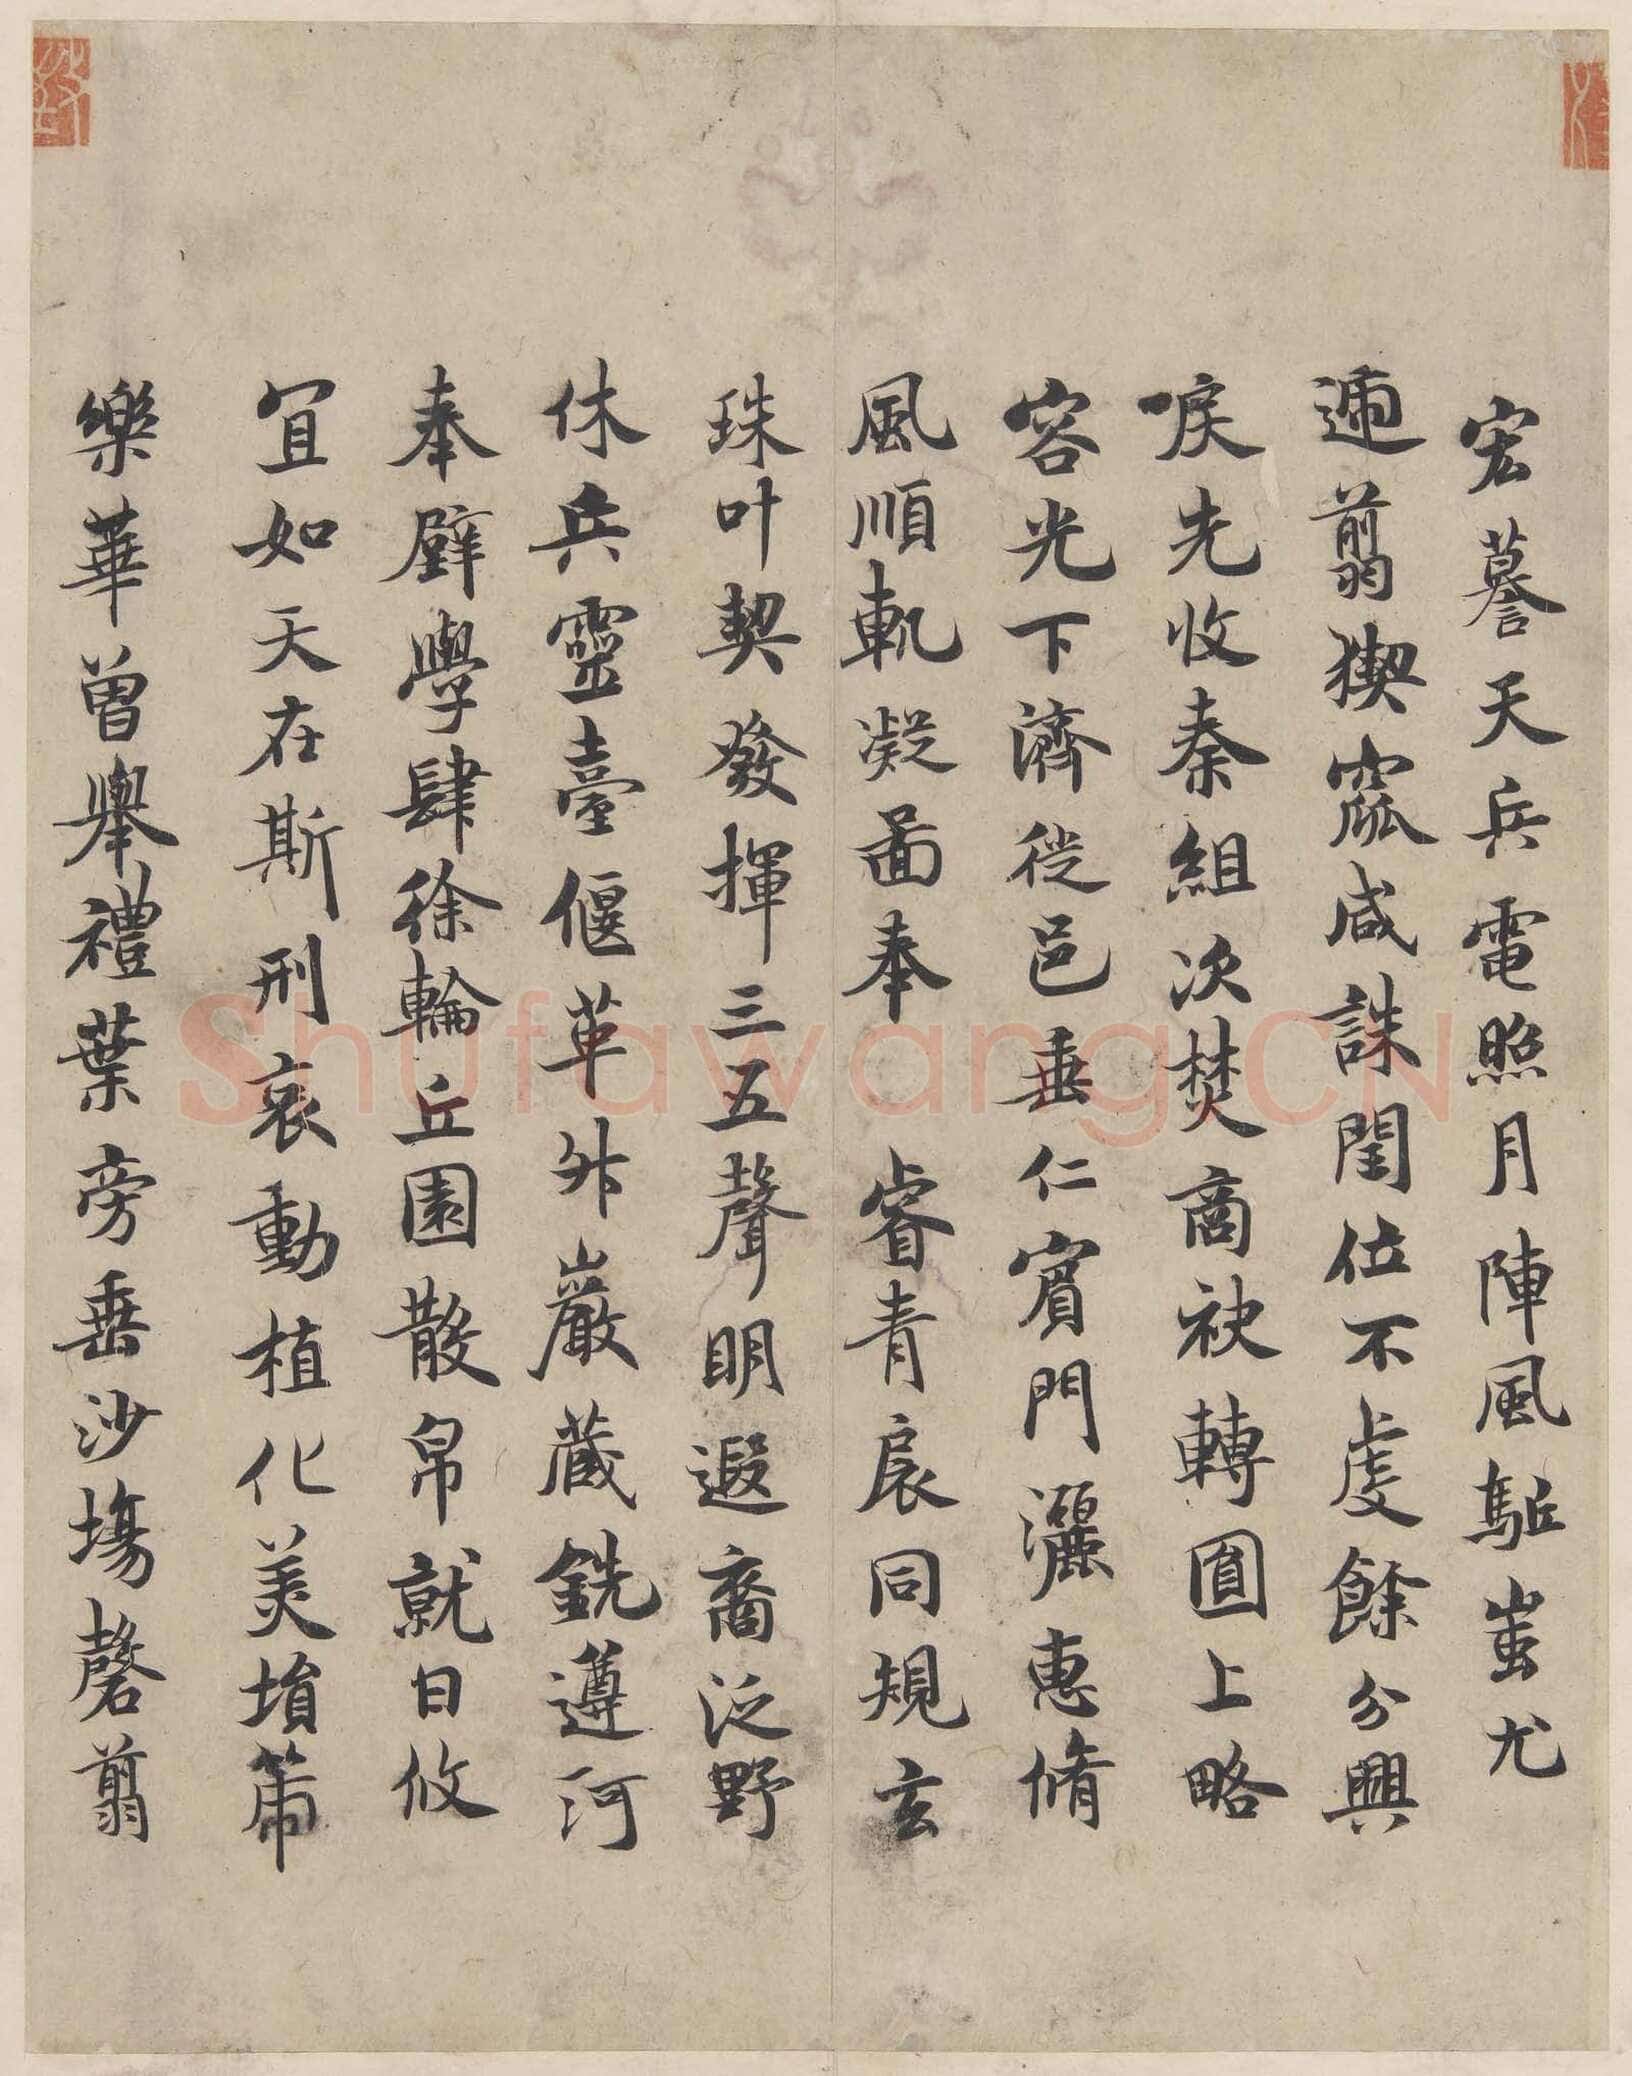 宏謩天兵電照月陣風駈蚩尤
遄翦猰窳咸誅閏位不虔餘分興
戾先收秦組次焚商袂轉圓上略
容光下濟從邑垂仁賓門灑惠脩
風順軌凝圖奉睿青扆同規玄
珠叶契發揮三五聲明遐裔泛野
休兵靈臺偃革外巖蔵銑遵河
奉璧學肆徐輪丘園散帛就日攸
宜如天在斯刑哀動植化美埍
樂華曾舉禮葉旁垂沙塲磬翦
Shufawang.CN